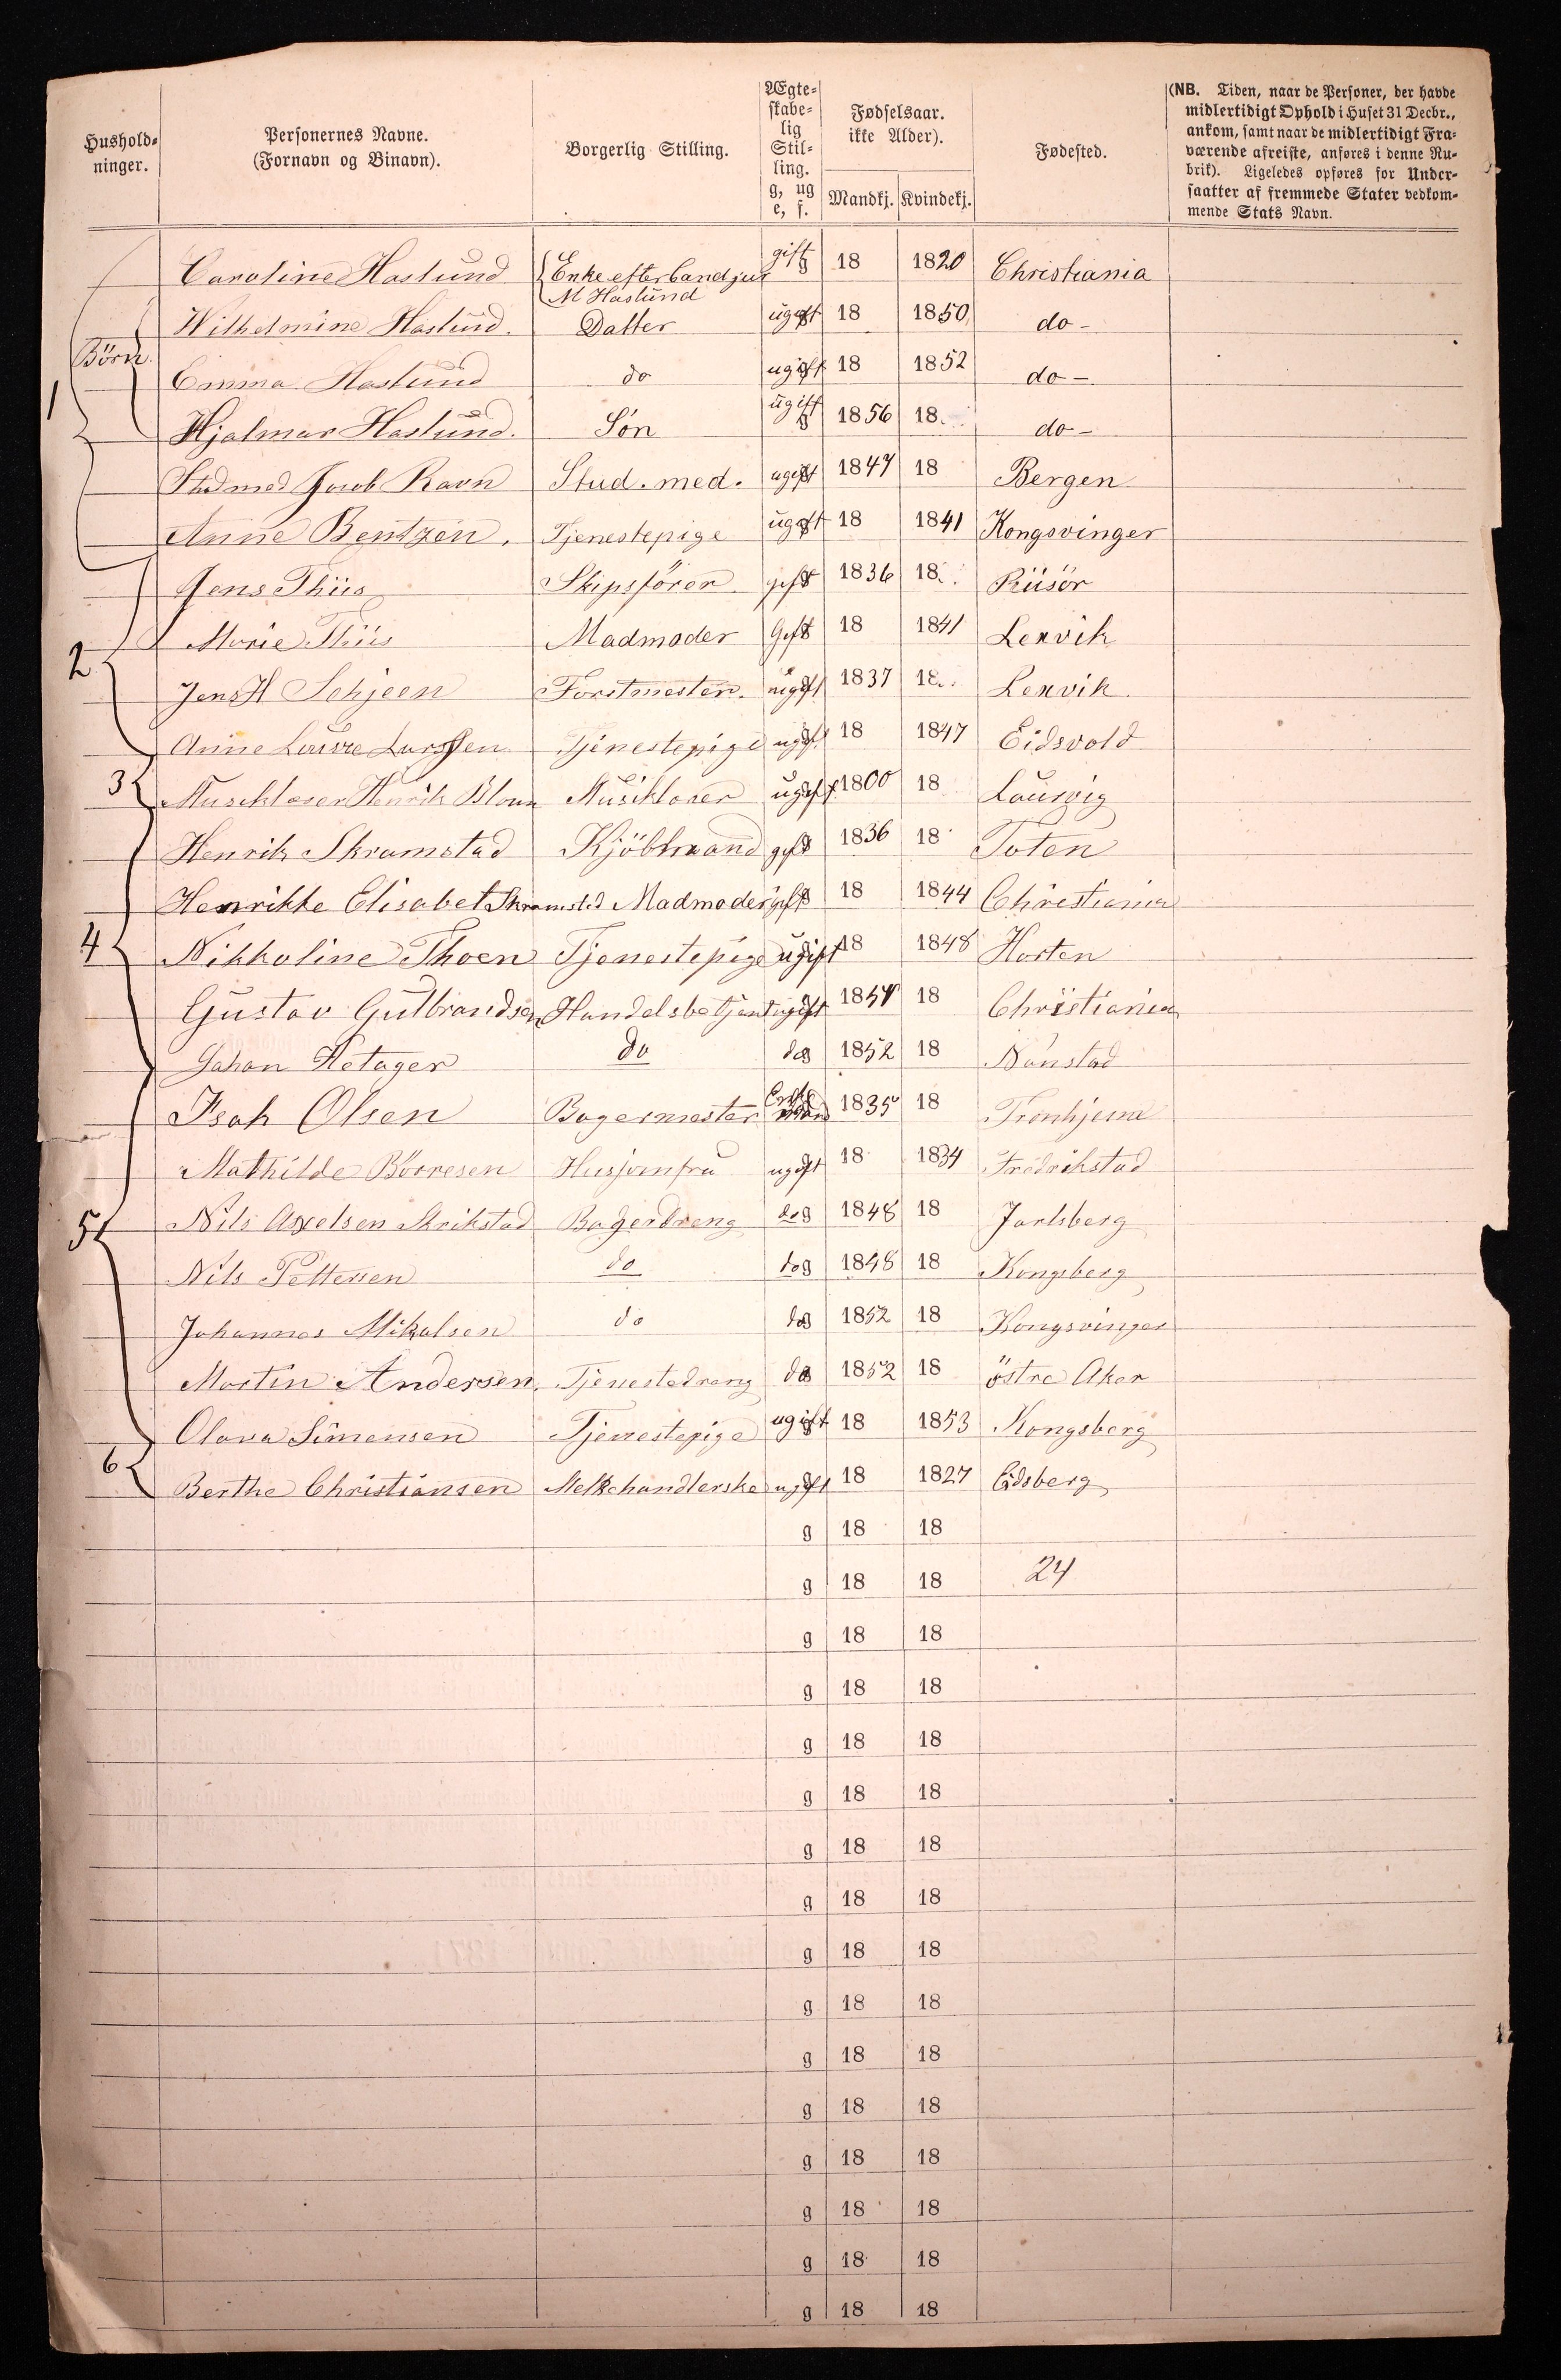 Hushold-
ninger.
Personernes Navne.
(Fornavn og Binavn).
Borgerlig Stilling.
Ægte-
skabe-
lig
Stil-
ling.
g, ug
e, f.
Fødselsaar.
ikke Alder).
Mandkj. Kvindekj.
Fødested.
(NB. Tiden, naar de Personer, der havde
midlertidigt Ophold i Huset 31 Decbr.,
ankom, samt naar de midlertidigt Fra-
værende afreiste, anføres i denne Ru-
brik). Ligeledes opføres for Under-
saatter af fremmede Stater vedkom-
mende Stats Navn.
Caroline Haslund Enke efter Cand jur gift g 18 1820 Christiania
M Haslund
Wilhelmine Haslund. Datter ugift 18 1850 do -
Börn
Emma Haslund do ugift 18 1852 do -
1 Hjalmar Haslund. Sön ugift g 1856 18 do -
Stud med Jacob Ravn Stud. med. ugift 1847 18 Bergen
Anne Bentzen. Tjenestepige ugift 18 1841 Kongsvinger
Jens Thiis Skipsförer gift 1836 18 Riisör
2 Marie Thiis Madmoder Gift 18 1841 Lexvik
Jens H Schjeen Forstmester. ugift 1837 18 Lexvik
Anne Lovise Larssen Tjenestepige ugift 18 1847 Eidsvold
3 Musiklærer Henrik Blom Musiklærer ugift 1800 18 Laurvig
Henrik Skramstad Kjöbmand gift 1836 18 Toten
Henrikke Elisabet Skramstad Madmoder gift 18 1844 Christiania
4 Nikkoline Thoen Tjenestepige ugift 18 1848 Horten
Gustav Gulbrandsen Handelsbetjent ugift 1854 18 Christiania
Johan Hetager do do g 1852 18 Nanstad
Isak Olsen Bagermester Enke mand 1835 18 Tronhjem
Mathilde Börresen Husjomfru ugift 18 1834 Fredrikstad
5 Nils Axelsen Skrikstad Bagerdreng do g 1848 18 Jarlsberg
Nils Pettersen do do g 1848 18 Kongsberg
Johannes Mikalsen do do g 1852 18 Kongsvinger
Martin Andersen. Tjenestedreng do g 1852 18 östre Aker
Olava Simensen Tjenestepige ugift 18 1853 Kongsberg
6 Berthe Christiansen Melkehandlerske ugift 18 1827 Eidsberg
g 18 18
g 18 18 24
g 18 18
g 18 18
g 18 18
g 18 18
g 18 18
g 18 18
g 18 18
g 18 18
g 18 18
g 18 18
g 18 18
g 18 18
g 18 18
g 18 18